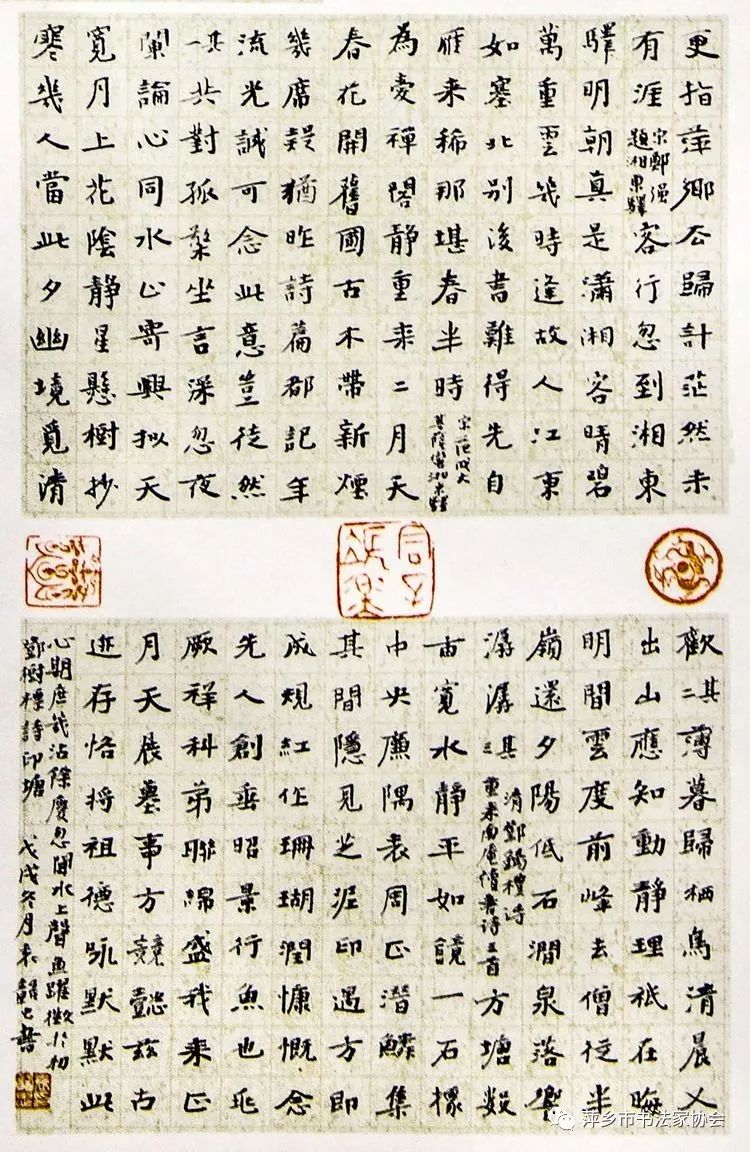 更指萍鄉歸計茫然未
有涯宋鄭强題湘東驛客行忽到湘東
驛明朝真是瀟湘客晴碧
萬重雲幾時逢故人江東
如塞北別後書難得先自
雁來稀那堪春半時宋范成大菩薩蠻湘東驛
為愛禪閣靜重来二月天
春花開舊國古木帶新煙
幾席猶昨詩篇都記年
流光誠可念此意豈徒然
其一共對孤檠坐言深忽夜
闌論心同水止寄興拟天
寬月上花陰靜星懸樹抄
寒幾人當此夕幽境覓清
歡其二薄暮歸栖鳥清晨人
出山應知動靜理祇在晦
明間雲度前峰去僧從半
嶺還夕陽低石澗泉落響
潺潺其三清鄭錫禮诗重来南庵僧書诗三首方塘數
亩寬水靜平如鏡一石樑
中央廉隅表周正潛鱗集
其間隱見芝泥印遇方即
成規紅作珊瑚潤慷慨念
先人創垂昭景行魚也兆
厥祥科弟聯綿盛我来正
月天展墓事方競懿兹古
迹存恪將祖德詠默默此
心期庶或沾餘慶忽聞水上聲魚躍徵於初
鄧樹標詩印塘 戊戌冬月袁書
萍乡市书法家协会